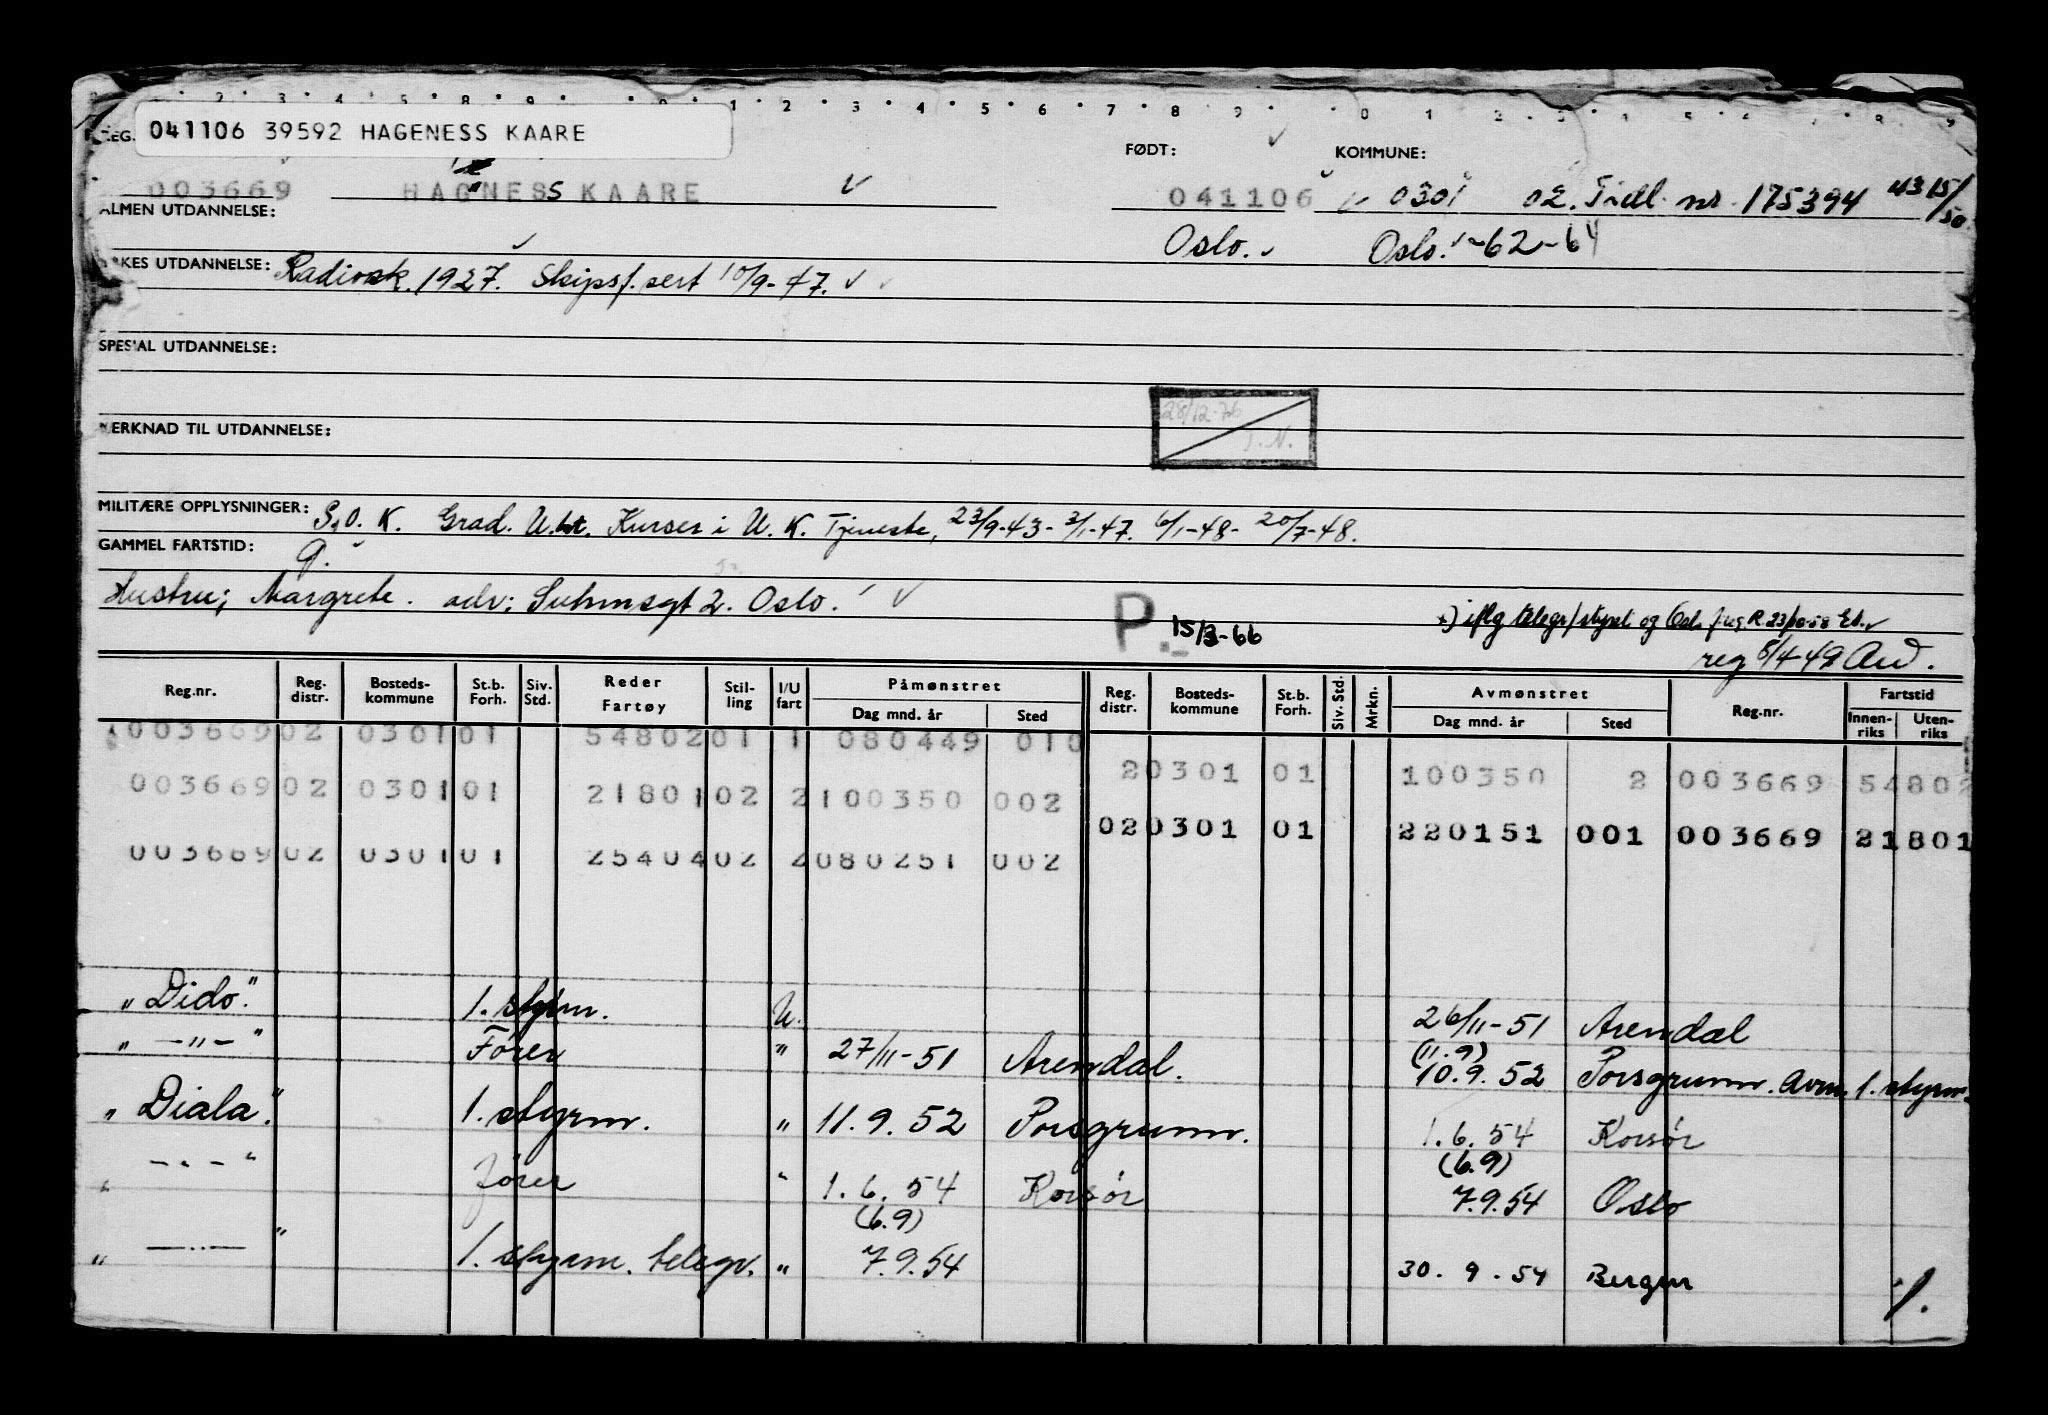 041106 39592 HAGENESS KAARE
FØDT: KOMMUNE:
003669 HAGNESS KAARE 041106 0301 02. Tidl. nr. 175394
ALMEN UTDANNELSE: Oslo. Oslo. -62-64
YRKES UTDANNELSE: Radiosk. 1927. Skipsf. sert 10/9-47.
SPESIAL UTDANNELSE:
28/12-76
MERKNAD TIL UTDANNELSE:
MILITÆRE OPPLYSNINGER: S.O.K. Grad. Kurser i U.K. Tjeneste, 23/9-43-3/1-47. 6/1-48-20/7-48.
GAMMEL FARTSTID: 9.
Hustru; Margrete. adr; Suhmsgt 2. Oslo.
P. 15/3-66
reg 8/4-49
Reg.nr. Reg. distr. Bosteds-kommune St.b. Forh. Siv. Std. Reder Fartøy Stil-ling I/U fart Påmønstret Dag mnd. år Sted Reg. distr. Bosteds-kommune St.b. Forh. Siv. Std. Mrkn. Avmønstret Dag mnd. år Sted Reg.nr. Fartstid Innen-riks Uten-riks
003669 02 0301 01 54802 01 1 080449 010
2 0301 01 100350 2 003669 54802
003669 02 0301 01 21801 02 2 100350 002
02 0301 01 220151 001 003669 21801
003669 02 0301 01 25404 02 2 080251 002
"Dido." 1. styrm. U. 26/11-51 Arendal
" -"- " Fører " 27/11-51 Arendal. (11.9) 10.9.52 Porsgrunn. Avm. 1. styrm.
"Diala." 1. styrm. " 11.9.52 Porsgrunn. 1.6.54 Korsør
" -"- " fører " 1.6.54 Korsør (6.9) 7.9.54 Oslo
" -"- " 1. styrm. telegr. " (6.9) 7.9.54 30.9.54 Bergen
1.